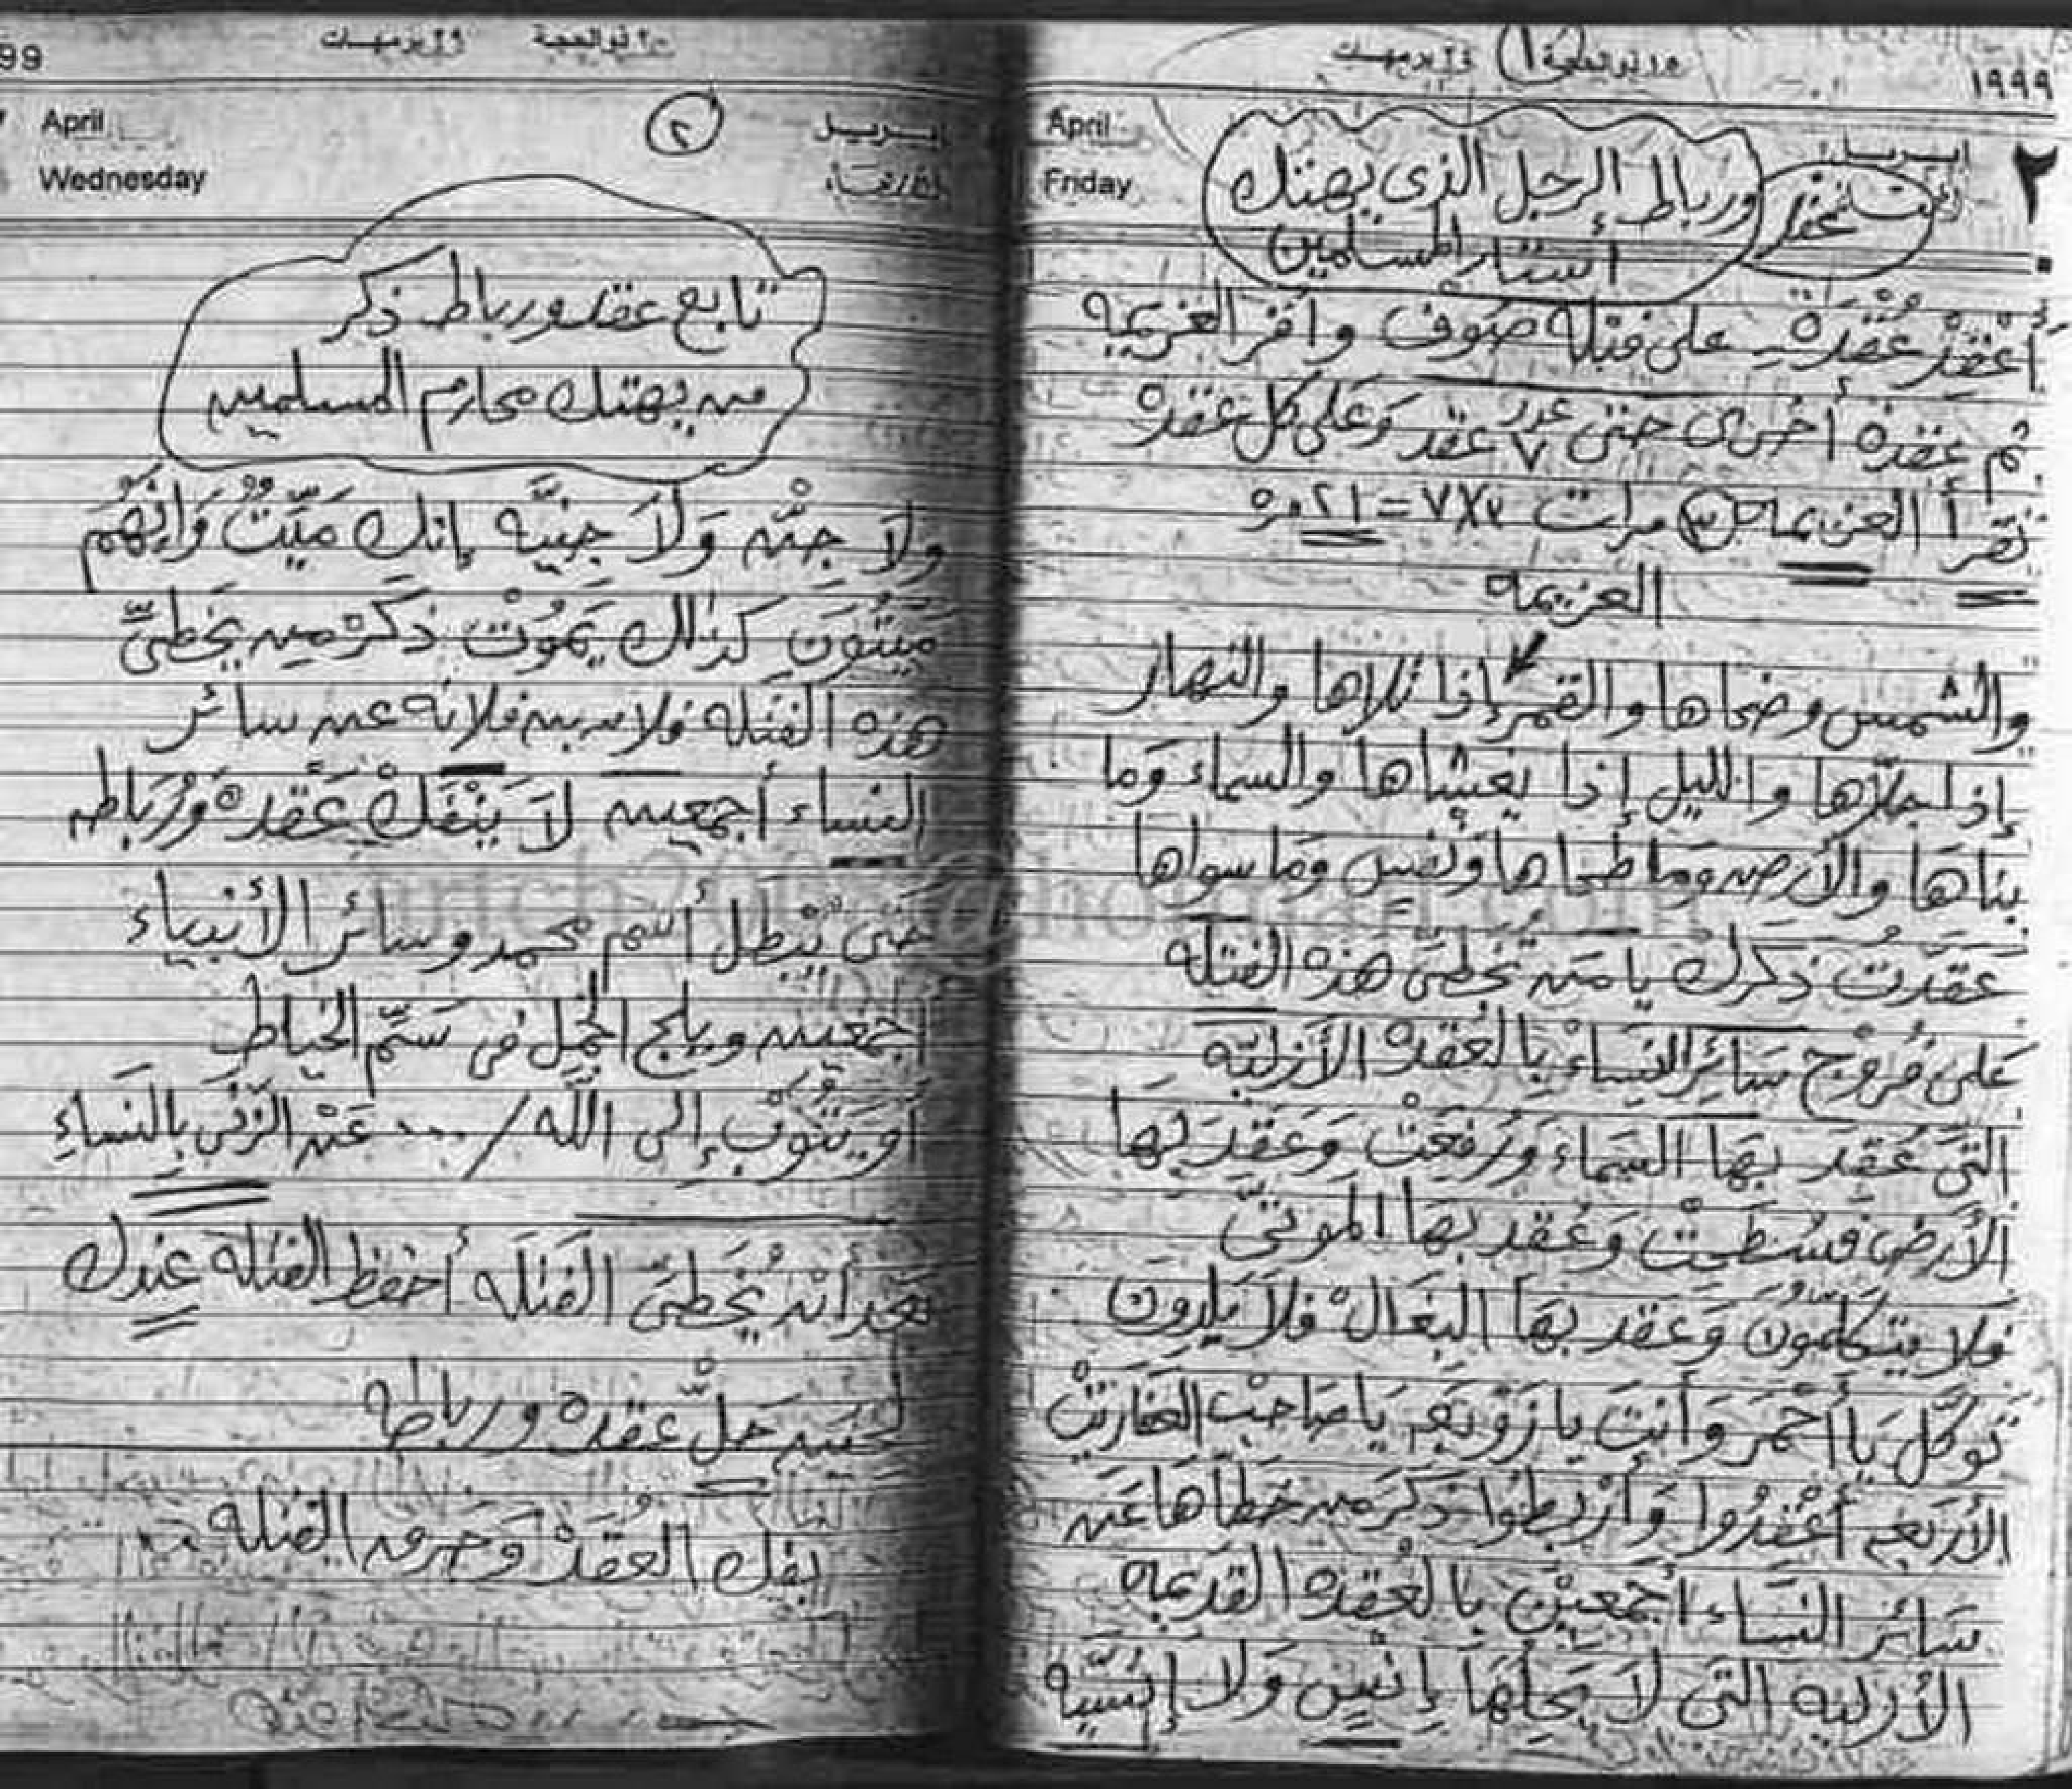 ١٩٩٩
١٥ ذو الحجة ٢٤ برمهات
١
April
ابريل
٢
Friday
عقد
ورباط الرجل الذى يهتك
أستار المسلمين
أعْقِدْ عُقْدَة على فتلة صُوْف واقر العزيمه
ثم عقدة أخرى حتى عدد ٧ عقد وَعَلى كل عقدة
تقرأ العزيمة ٣ مرات ٧X٣ = ٢١ مرة
العزيمه
والشمس وضحاها والقمر إذا تلاها والنهار
إذا جلاّها والليل إذا يغشاها والسماء وَما
بناهَا والأرض وما طحاها وَنفس وَما سواها
عَقَدْتُ ذكرك يا من تَخْطىّ هذه الفتلة
عَلى فُرُوْج سَائِر النِسَاءْ بالعُقْدة الأزليّه
التىَّ عُقِدَ بهَا السَماء وَرُفِعَتْ وَعَقِدَ بهَا
الأرض فسُطِحِتْ وَعُقِد بهَا الموتىّ
فلا يتكلمُونْ وَعَقد بهَا البغَالْ فلاَ يَلدونَ
تَوكَّل يَا أحْمَر وَأنتَ يا زَوْبَعَه يَا صَاحبْ العَفاريتْ
الأرْبَعه أعْقِدُوا وَأرْبِطوا ذَكَر من خَطَّاهَا عَن
سَائر النسَاء أجْمَعِيْن بالعُقدة القديمه
الأزليه التى لاَ يَحِلهَا إنْسٍ وَلا إنسَّيه
99
٢٠ ذو الحجة ٢٩ برمهات
April
٢
ابريل
Wednesday
الأربعاء
تابع عقد ورباط ذكر
من يهتك محارم المسلمين
ولاَ جِنْه وَلاَ جِنيَّه إنك مَيّتٌ وَإنَّهُم
مَيتُونَ كذلك يَمُوْت ذكَرْ من يَخطىّ
هذه الفتلة فلان بن فلانة عن سائر
النساء أجمعين لاَ يَنْفَكْ عَقْدة وَرُبَاطه
حَتى يَبْطل أسْم محمد وسائر الأنبياء
اجمعين ويلج الجَمل فى سَمّ الخياط
أو يَتُوْب إلى اللّه / .... عَنْ الزّنى بالنسَاءِ
بَعْد أنْ يُخَطىّ الفتلَه أحفظ الفتلة عندك
لحين حَلّ عقدة ورباطه
بفك العُقَدْ وَحرق الفتله